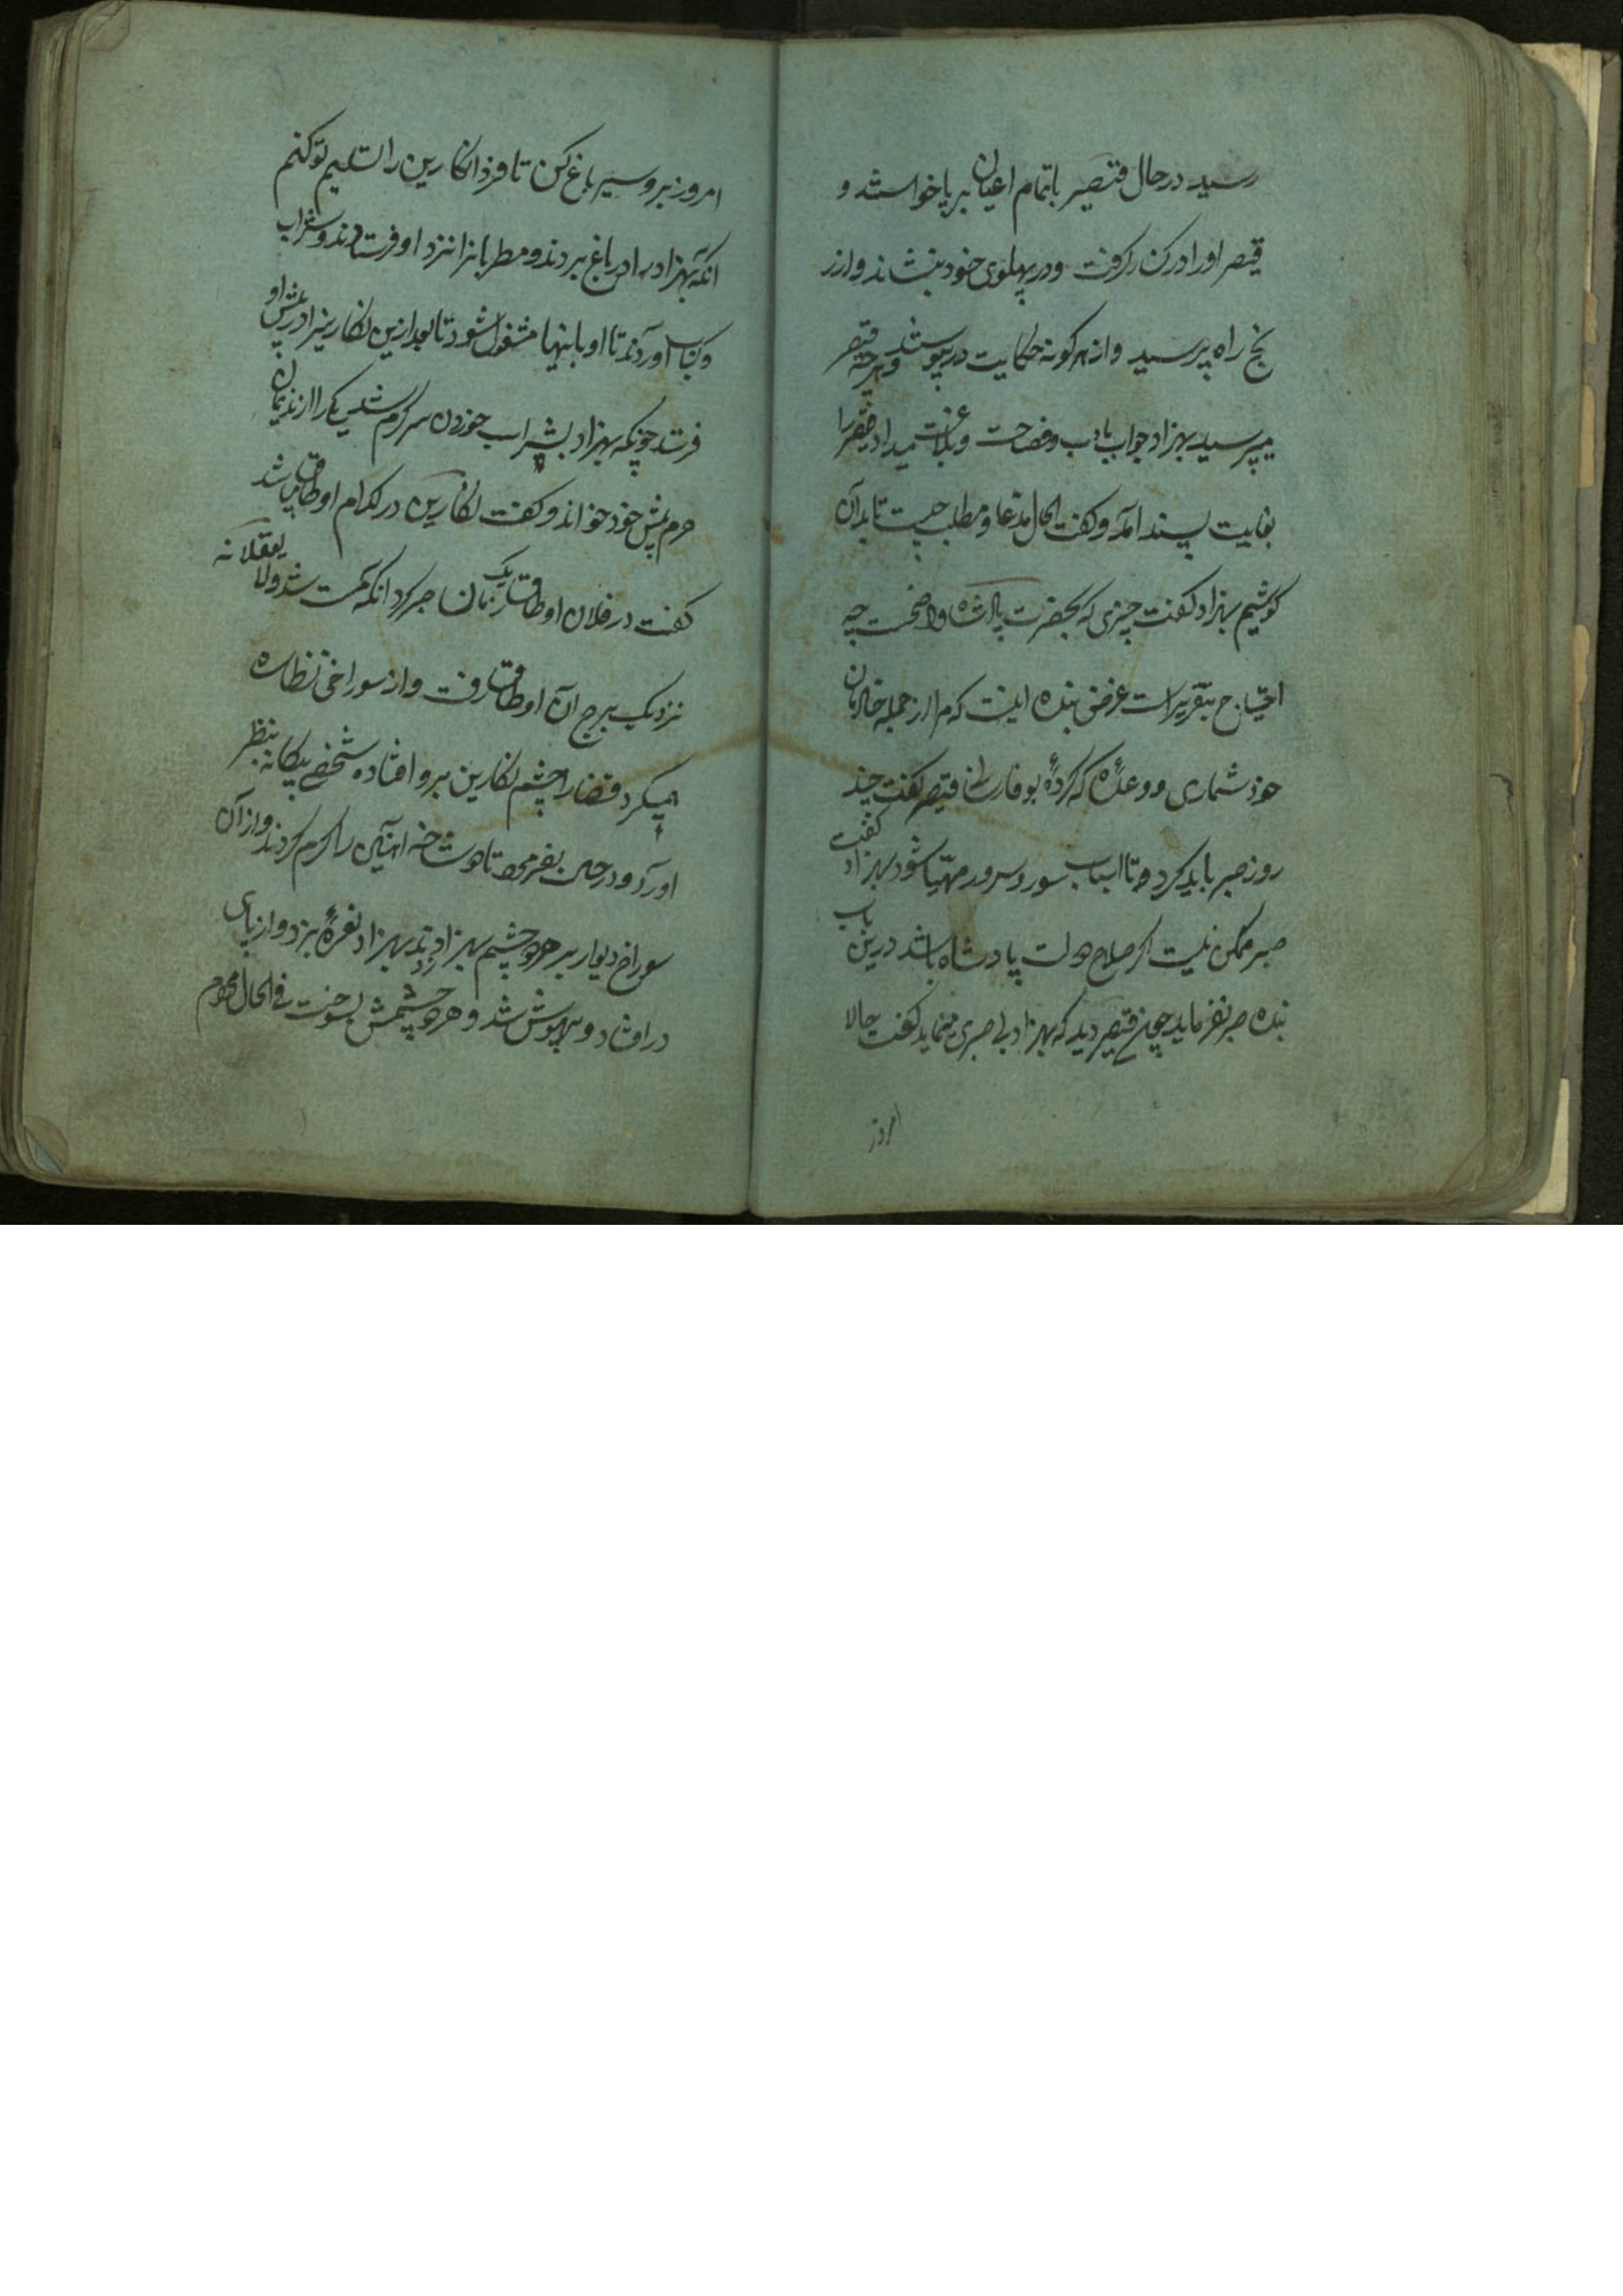 رسید در حال قیصر باتمام اعیان برپا خواستند و
قیصر اورا در کنار گرفت و در پهلوی خود بنشاند و از ر
نج راه پرسید و از هر گونه حکایت در پیوستند و هرچه قیصر
میپرسید بهزاد جواب بادب و فصاحت و بلاغت میداد قیصر را
بغایت پسند آمد و گفت الحال مدعا و مطلب چیست تا بدان
کوشیم بهزاد گفت چیزی که بحضرت پادشاه واضحست چه
احتیاج بتقریر است غرض بنده اینست که مرا از جمله خادمان
خود شماری و وعدهٔ که کردهٔ بوفا رسانی قیصر گفت چند
روز صبر باید کرد تا اسباب سور و سرور مهیا شود بهزاد گفت
صبر ممکن نیست اگر صلاح دولت پادشاه باشد درین باب
بنده صبر نفرماید چون قیصر دید که بهزاد بی صبری مینماید گفت حالا
امروز
امروز برو سیر باغ کن تا فردا نکارین را تسلیم تو کنم
انکه بهزاد را در باغ بردند و مطربانرا نزد او فرستادند و شراب
و کباب آوردند تا او باینها مشغول شود تا بعد ازین نکارینرا در پیش او
فرستد چونکه بهزاد بشراب خوردن سرگرم شد یکی را از ندیمان
حرم پیش خود خواند و گفت نکارین در کدام اوطاق میباشد
گفت در فلان اوطاق یک زمان صبر کرد انکه مست شد و لا یعقلانه
نزدیک برج آن اوطاق رفت و از سوراخی نظاره
میکرد قضارا چشم نکارین برو افتاده شخصی بیکانه بنظر
اورد و در حین بفرمود تا دو شاخه آهنین را گرم کردند و از آن
سوراخ دیوار بر هر دو چشم بهزاد زدند بهزاد نعرهٔ بزد و از پای
در افتاد و بیهوش شد و هر دو چشمش بسوخت فی الحال محروم